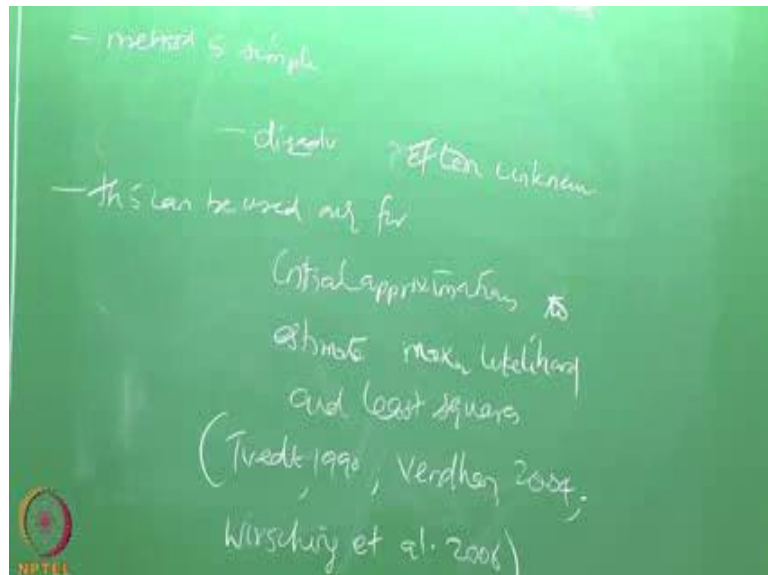 - method is simple
- disadv often unknown
- this can be used only for
initial approximations to
estimate max likelihood
and least squares
(Tvedt 1990, Verdhan 2004;
Wirsching et al. 2006)
NPTEL